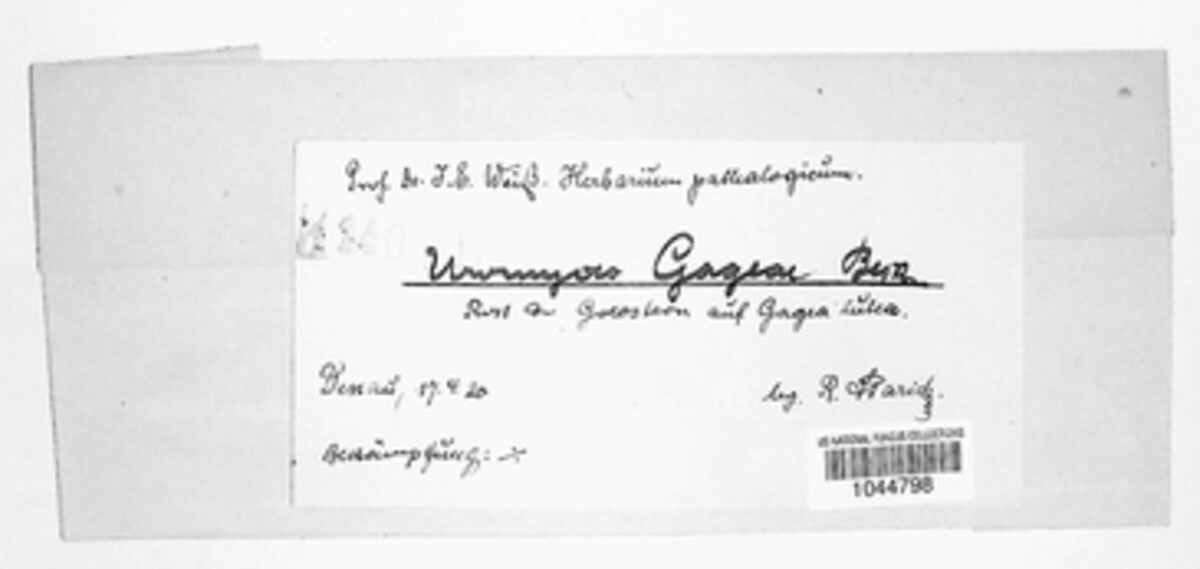 Prof. Dr. J. E. Weiß. Herbarium pathologicum.
Uromyces Gageae Beck
Rost des Goldstern auf Gagea lutea.
17. 4. 20
leg. R.
Bekämpfung: –
US NATIONAL FUNGUS COLLECTIONS
1044798